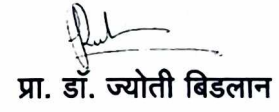 प्रा. डॉ. ज्योती बिडलान